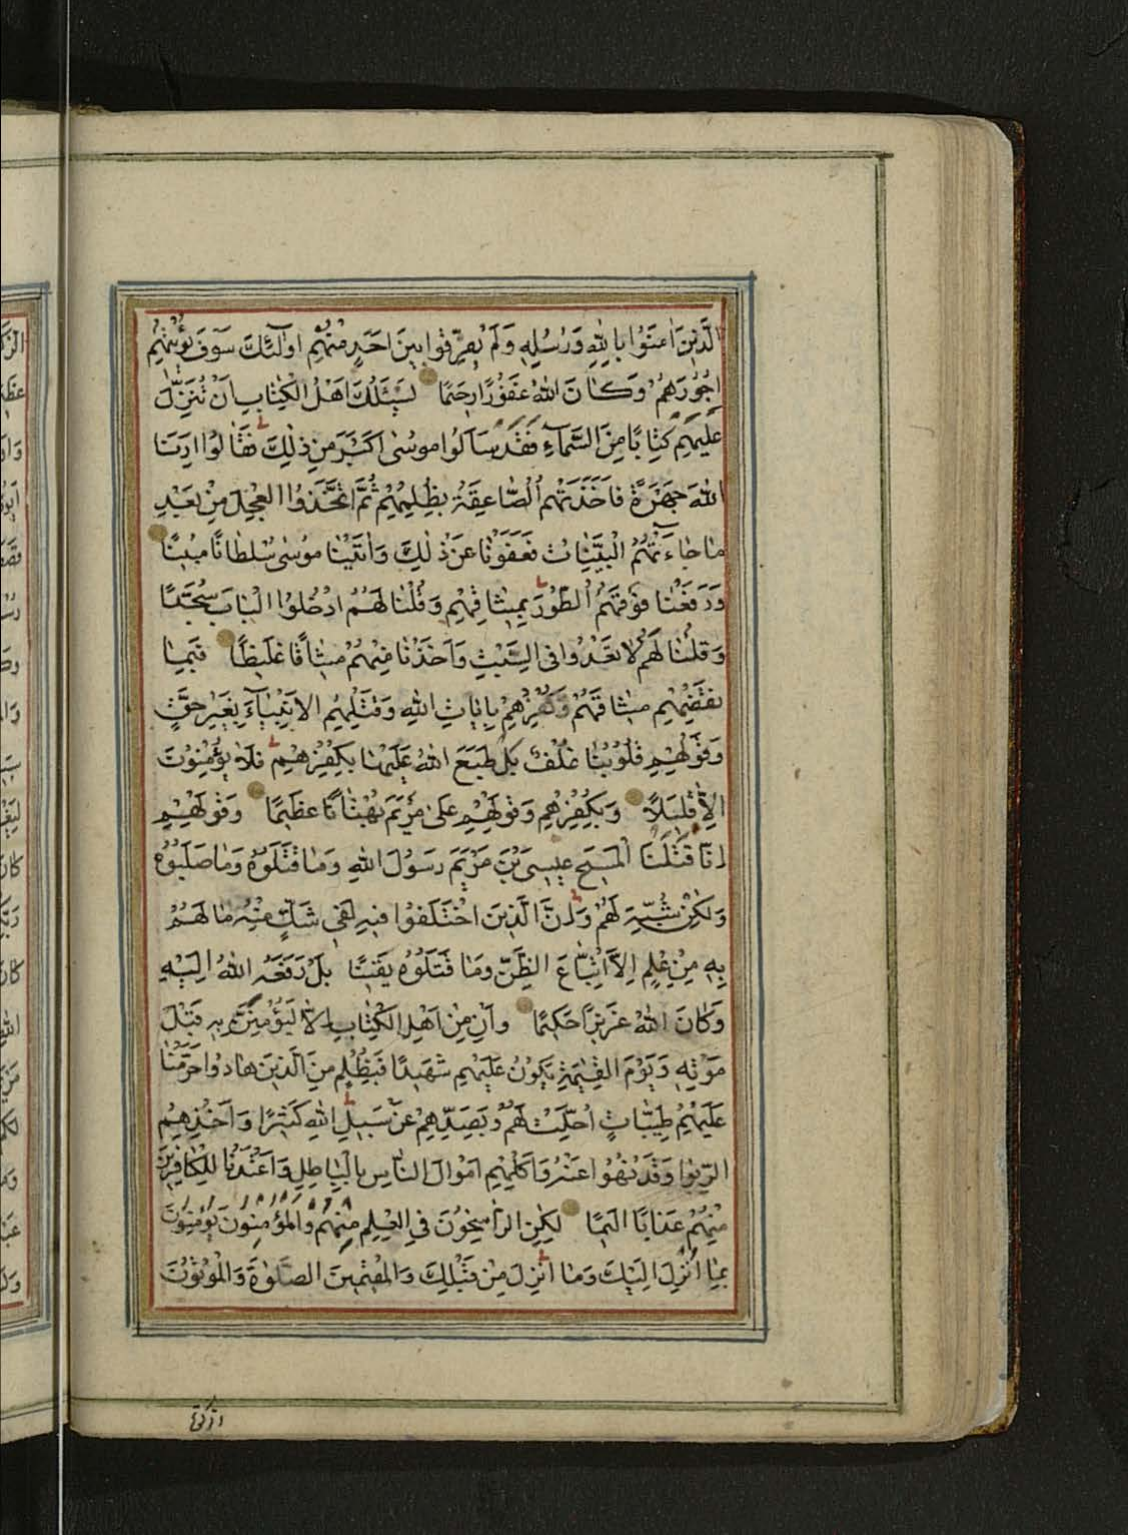 الَّذِينَ اٰمَنُوا بِاللّٰهِ وَرُسُلِهِ وَلَمْ يُفَرِّقُوا بَيْنَ اَحَدٍ مِنْهُمْ اُولٰٓئِكَ سَوْفَ يُؤْتِيهِمْ
اُجُورَهُمْ وَكَانَ اللّٰهُ غَفُورًا رَحِيمًا يَسْـَٔلُكَ اَهْلُ الْكِتَابِ اَنْ تُنَزِّلَ
عَلَيْهِمْ كِتَابًا مِنَ السَّمَآءِ فَقَدْ سَاَلُوا مُوسٰى اَكْبَرَ مِنْ ذٰلِكَ فَقَالُوا اَرِنَا
اللّٰهَ جَهْرَةً فَاَخَذَتْهُمُ الصَّاعِقَةُ بِظُلْمِهِمْ ثُمَّ اتَّخَذُوا الْعِجْلَ مِنْ بَعْدِ
مَا جَآءَتْهُمُ الْبَيِّنَاتُ فَعَفَوْنَا عَنْ ذٰلِكَ وَاٰتَيْنَا مُوسٰى سُلْطَانًا مُبِينًا
وَرَفَعْنَا فَوْقَهُمُ الطُّورَ بِمِيثَاقِهِمْ وَقُلْنَا لَهُمُ ادْخُلُوا الْبَابَ سُجَّدًا
وَقُلْنَا لَهُمْ لَا تَعْدُوا فِى السَّبْتِ وَاَخَذْنَا مِنْهُمْ مِيثَاقًا غَلِيظًا فَبِمَا
نَقْضِهِمْ مِيثَاقَهُمْ وَكُفْرِهِمْ بِاٰيَاتِ اللّٰهِ وَقَتْلِهِمُ الْاَنْبِيَآءَ بِغَيْرِ حَقٍّ
وَقَوْلِهِمْ قُلُوبُنَا غُلْفٌ بَلْ طَبَعَ اللّٰهُ عَلَيْهَا بِكُفْرِهِمْ فَلَا يُؤْمِنُونَ
اِلَّا قَلِيلًا وَبِكُفْرِهِمْ وَقَوْلِهِمْ عَلٰى مَرْيَمَ بُهْتَانًا عَظِيمًا وَقَوْلِهِمْ
اِنَّا قَتَلْنَا الْمَسِيحَ عِيسَى بْنَ مَرْيَمَ رَسُولَ اللّٰهِ وَمَا قَتَلُوهُ وَمَا صَلَبُوهُ
وَلٰكِنْ شُبِّهَ لَهُمْ وَاِنَّ الَّذِينَ اخْتَلَفُوا فِيهِ لَفِى شَكٍّ مِنْهُ مَا لَهُمْ
بِهِ مِنْ عِلْمٍ اِلَّا اتِّبَاعَ الظَّنِّ وَمَا قَتَلُوهُ يَقِينًا بَلْ رَفَعَهُ اللّٰهُ اِلَيْهِ
وَكَانَ اللّٰهُ عَزِيزًا حَكِيمًا وَاِنْ مِنْ اَهْلِ الْكِتَابِ اِلَّا لَيُؤْمِنَنَّ بِهِ قَبْلَ
مَوْتِهِ وَيَوْمَ الْقِيٰمَةِ يَكُونُ عَلَيْهِمْ شَهِيدًا فَبِظُلْمٍ مِنَ الَّذِينَ هَادُوا حَرَّمْنَا
عَلَيْهِمْ طَيِّبَاتٍ اُحِلَّتْ لَهُمْ وَبِصَدِّهِمْ عَنْ سَبِيلِ اللّٰهِ كَثِيرًا وَاَخْذِهِمُ
الرِّبٰوا وَقَدْ نُهُوا عَنْهُ وَاَكْلِهِمْ اَمْوَالَ النَّاسِ بِالْبَاطِلِ وَاَعْتَدْنَا لِلْكَافِرِينَ
مِنْهُمْ عَذَابًا اَلِيمًا لٰكِنِ الرَّاسِخُونَ فِى الْعِلْمِ مِنْهُمْ وَالْمُؤْمِنُونَ يُؤْمِنُونَ
بِمَا اُنْزِلَ اِلَيْكَ وَمَا اُنْزِلَ مِنْ قَبْلِكَ وَالْمُقِيمِينَ الصَّلٰوةَ وَالْمُؤْتُونَ